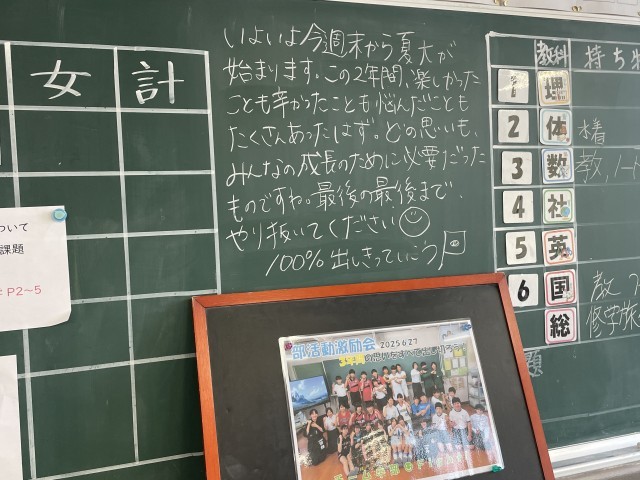 女 計
ついて
課題
P2～5
いよいよ今週末から夏大が
始まります。この2年間、楽しかった
ことも辛かったことも悩んだことも
たくさんあったはず。どの思いも、
みんなの成長のために必要だった
ものですね。最後の最後まで、
やり抜いてください
100%出しきっていこう
教科 持ち物
1 理
2 体 水着
3 数 教,ノート
4 社
5 英
6 国 教
総 修学旅
題
部活動激励会 2025 6 27